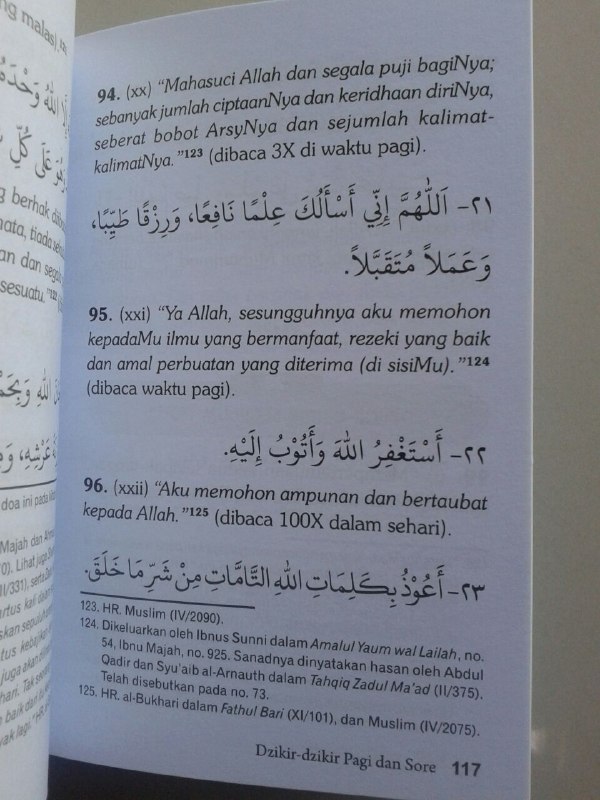 ng malas), ke
94. (xx) "Mahasuci Allah dan segala puji bagiNya;
sebanyak jumlah ciptaanNya dan keridhaan diriNya,
seberat bobot ArsyNya dan sejumlah kalimat-
kalimatNya."123 (dibaca 3X di waktu pagi).
٢١- اَللّٰهُمَّ إِنِّي أَسْأَلُكَ عِلْمًا نَافِعًا، وَرِزْقًا طَيِّبًا،
وَعَمَلاً مُتَقَبَّلاً.
95. (xxi) "Ya Allah, sesungguhnya aku memohon
kepadaMu ilmu yang bermanfaat, rezeki yang baik
dan amal perbuatan yang diterima (di sisiMu)."124
(dibaca waktu pagi).
٢٢- أَسْتَغْفِرُ اللهَ وَأَتُوْبُ إِلَيْهِ.
96. (xxii) "Aku memohon ampunan dan bertaubat
kepada Allah."125 (dibaca 100X dalam sehari).
٢٣- أَعُوْذُ بِكَلِمَاتِ اللهِ التَّامَّاتِ مِنْ شَرِّ مَا خَلَقَ.
123. HR. Muslim (IV/2090).
124. Dikeluarkan oleh Ibnus Sunni dalam Amalul Yaum wal Lailah, no.
54, Ibnu Majah, no. 925. Sanadnya dinyatakan hasan oleh Abdul
Qadir dan Syu'aib al-Arnauth dalam Tahqiq Zadul Ma'ad (II/375).
Telah disebutkan pada no. 73.
125. HR. al-Bukhari dalam Fathul Bari (XI/101), dan Muslim (IV/2075).
Dzikir-dzikir Pagi dan Sore 117